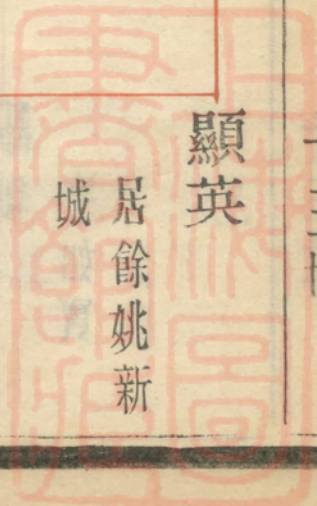 顯英
居餘姚新
城